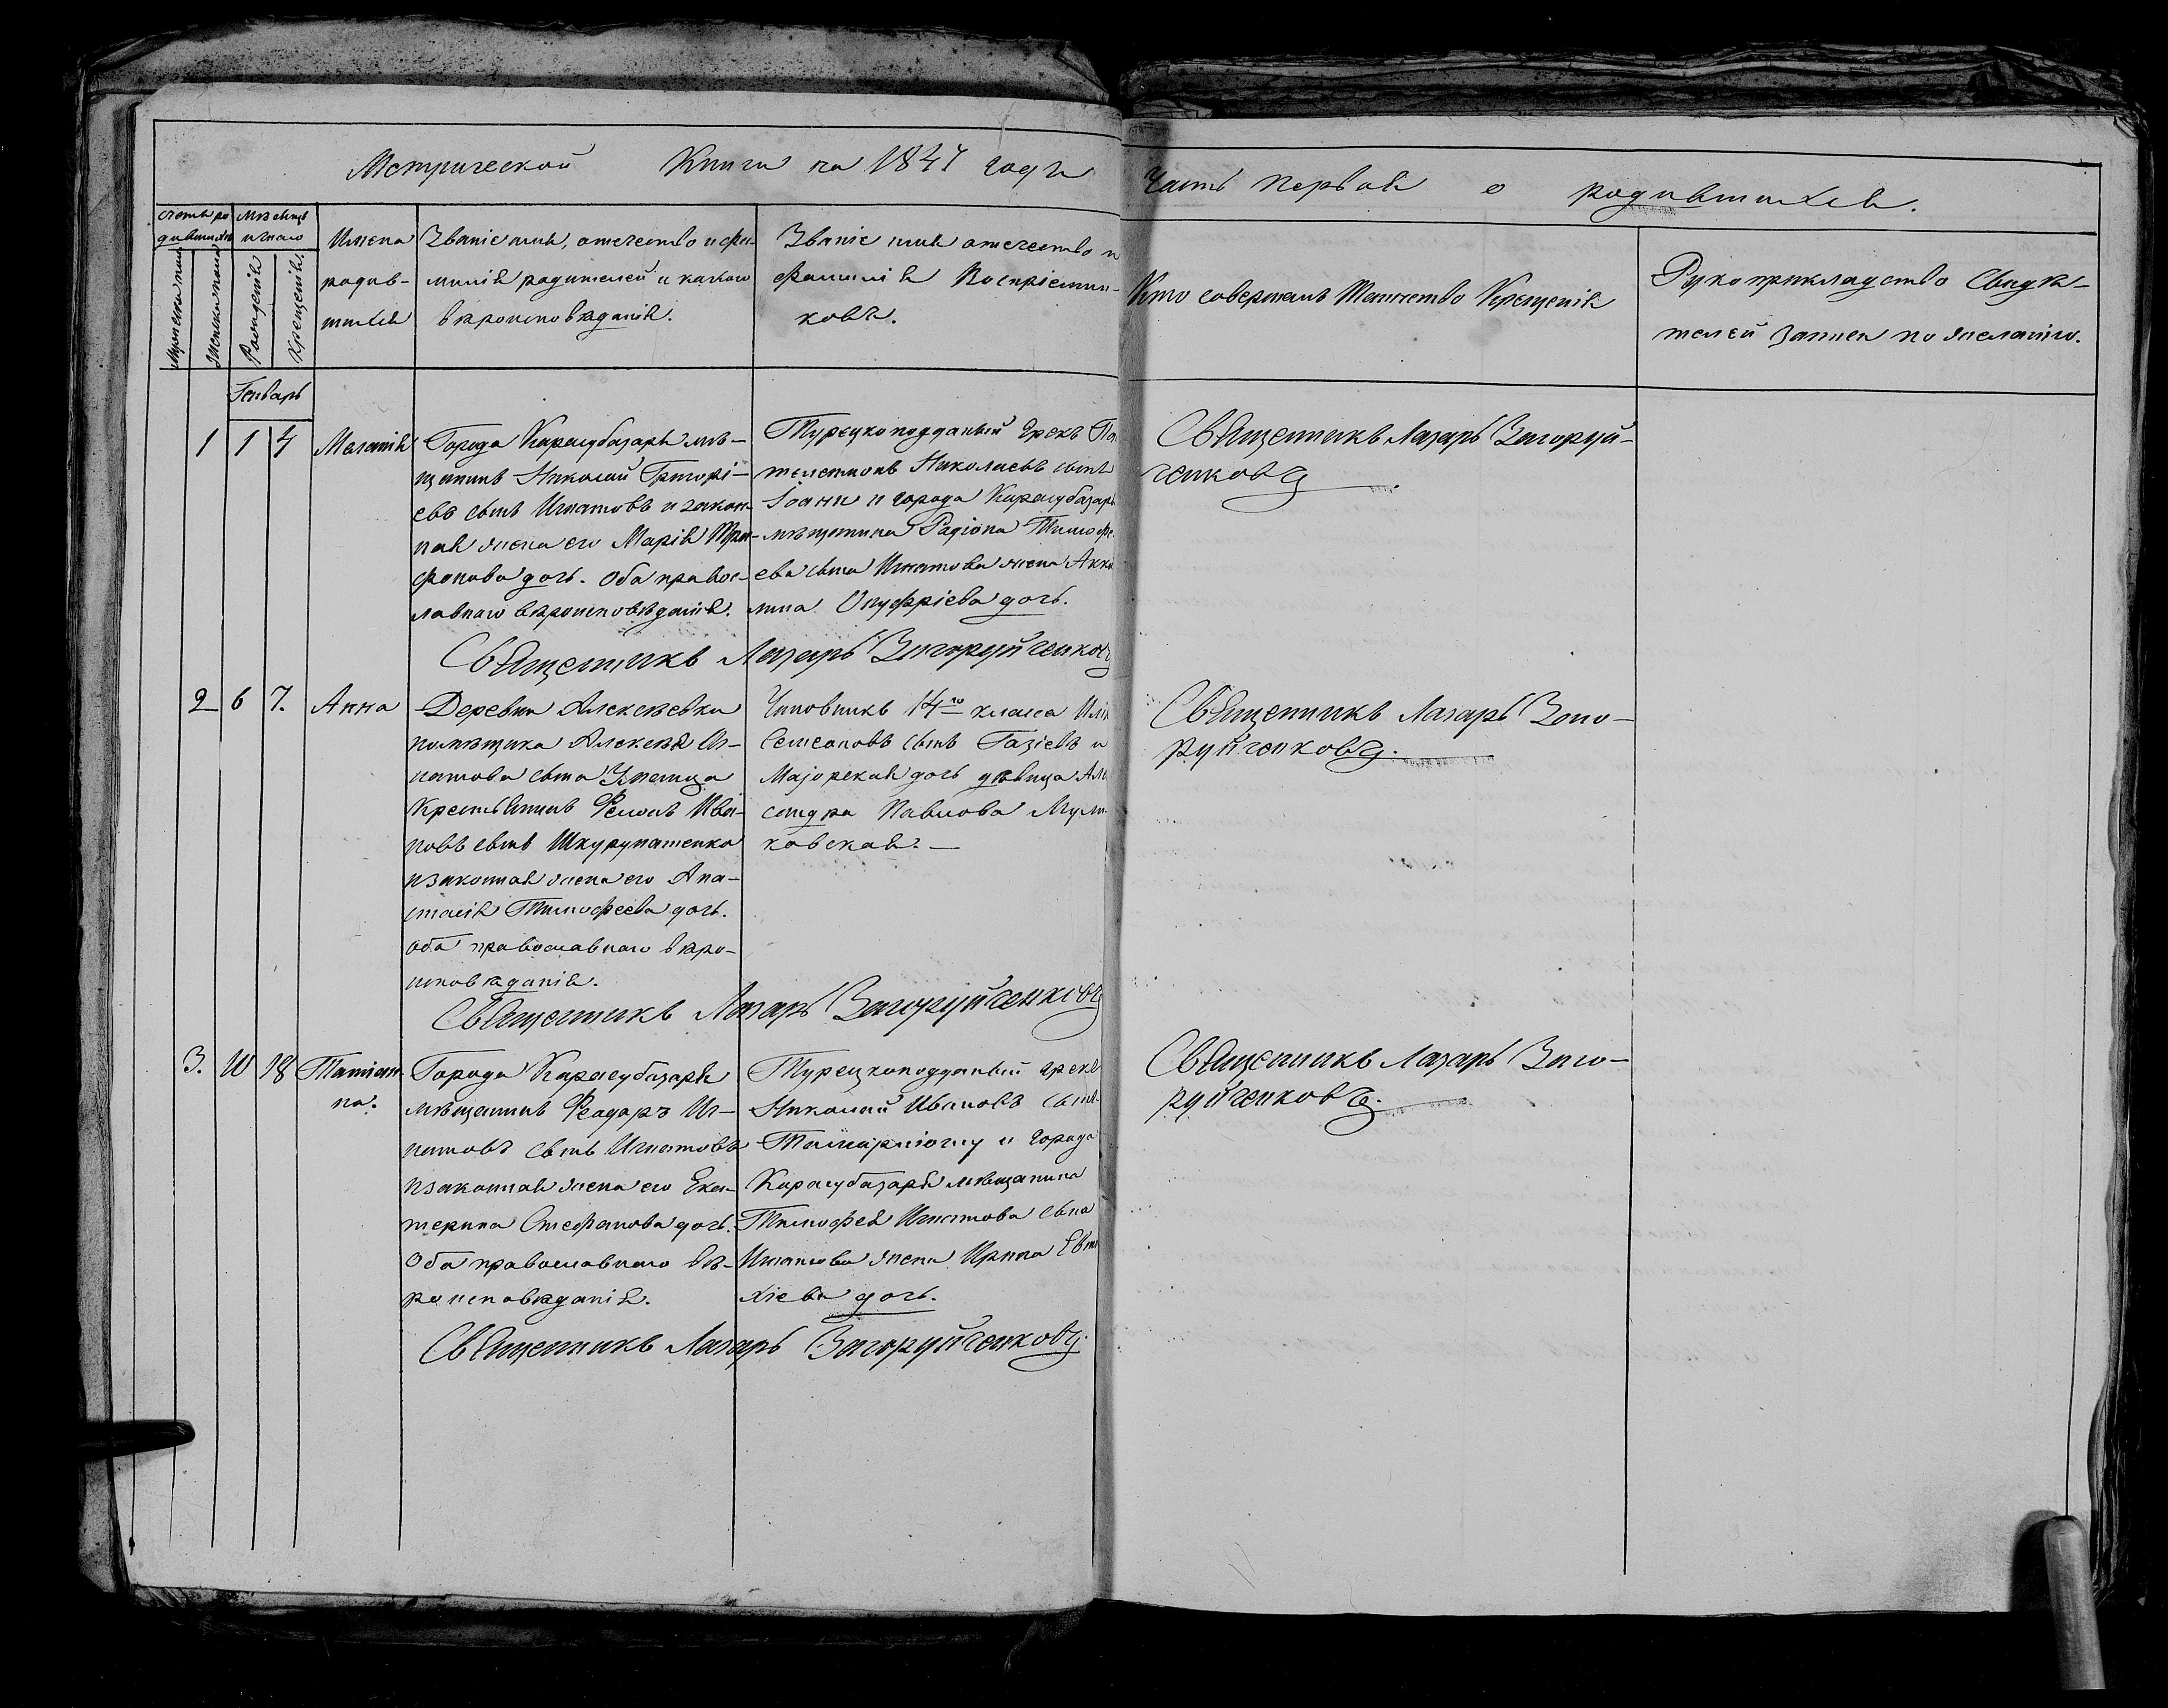 Метрической Книги на 1847 годъ
Часть первая о родившихся.
счетъ ро-
дившихся
Мужеска пола
Женска пола
Месяцъ
и число
Рожденія
Крещенія.
Имена
родив-
шихся
Званіе имя, отечество и фа-
милія родителей и какого
вѣроисповѣданія.
Званіе имя отечество и
фамилія Воспріемни-
ковъ.
Кто совершалъ Таинство Крещенія
Рукоприкладство Свидѣ-
телей записи по желанію.
Генварь
1 1 4
Меланія
Города Карасубазара мѣ-
щанинъ Николай Григорі-
евъ сынъ Игнатовъ и закон-
ная жена его Марія Три-
фонова дочь. Оба правос-
лавнаго вѣроисповѣданія.
Турецкоподданый Грекъ Па
телемонъ Николаевъ сынъ
Іоани и города Карасубазара
мѣщанина Радіона Тимофе
ева сына Игнатова жена Аки
лина Онуфріева дочь.
Священникъ Лазарь Загоруйченковъ
Священникъ Лазарь Загоруй-
ченковъ
2 6 7.
Анна
Деревни Алексѣевки
помѣщика Алексѣя Иг-
натова сына
крестьянинъ Ива-
новъ сынъ Шкурупатенко
и законная жена его Ана-
стасія Тимофеева дочь.
оба православнаго вѣро-
исповѣданія.
Чиновникъ 14го класса Илія
Семеоновъ сынъ Газіевъ и
Маіорская дочь дѣвица Але
сандра Павлова
ковская.
Священникъ Лазарь Загоруйченковъ
Священникъ Лазарь Заго-
руйченковъ.
3. 10 18
Татіан-
на.
Города Карасубазара
мѣщанинъ Феодаръ Иг-
натовъ сынъ Игнатовъ
и законная жена его Ека-
терина Стефанова дочь.
Оба православнаго вѣ-
роисповѣданія.
Турецкоподданый грекъ
Николай Ивановъ сынъ
и города
Карасубазара мѣщанина
Тимофея Игнатова сына
Игнатова жена Ирина Евти
хіева дочь.
Священникъ Лазарь Загоруйченковъ
Священникъ Лазарь Заго-
руйченковъ.